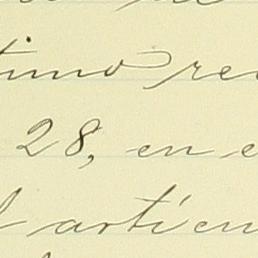 timo rec
28, en e
l articu